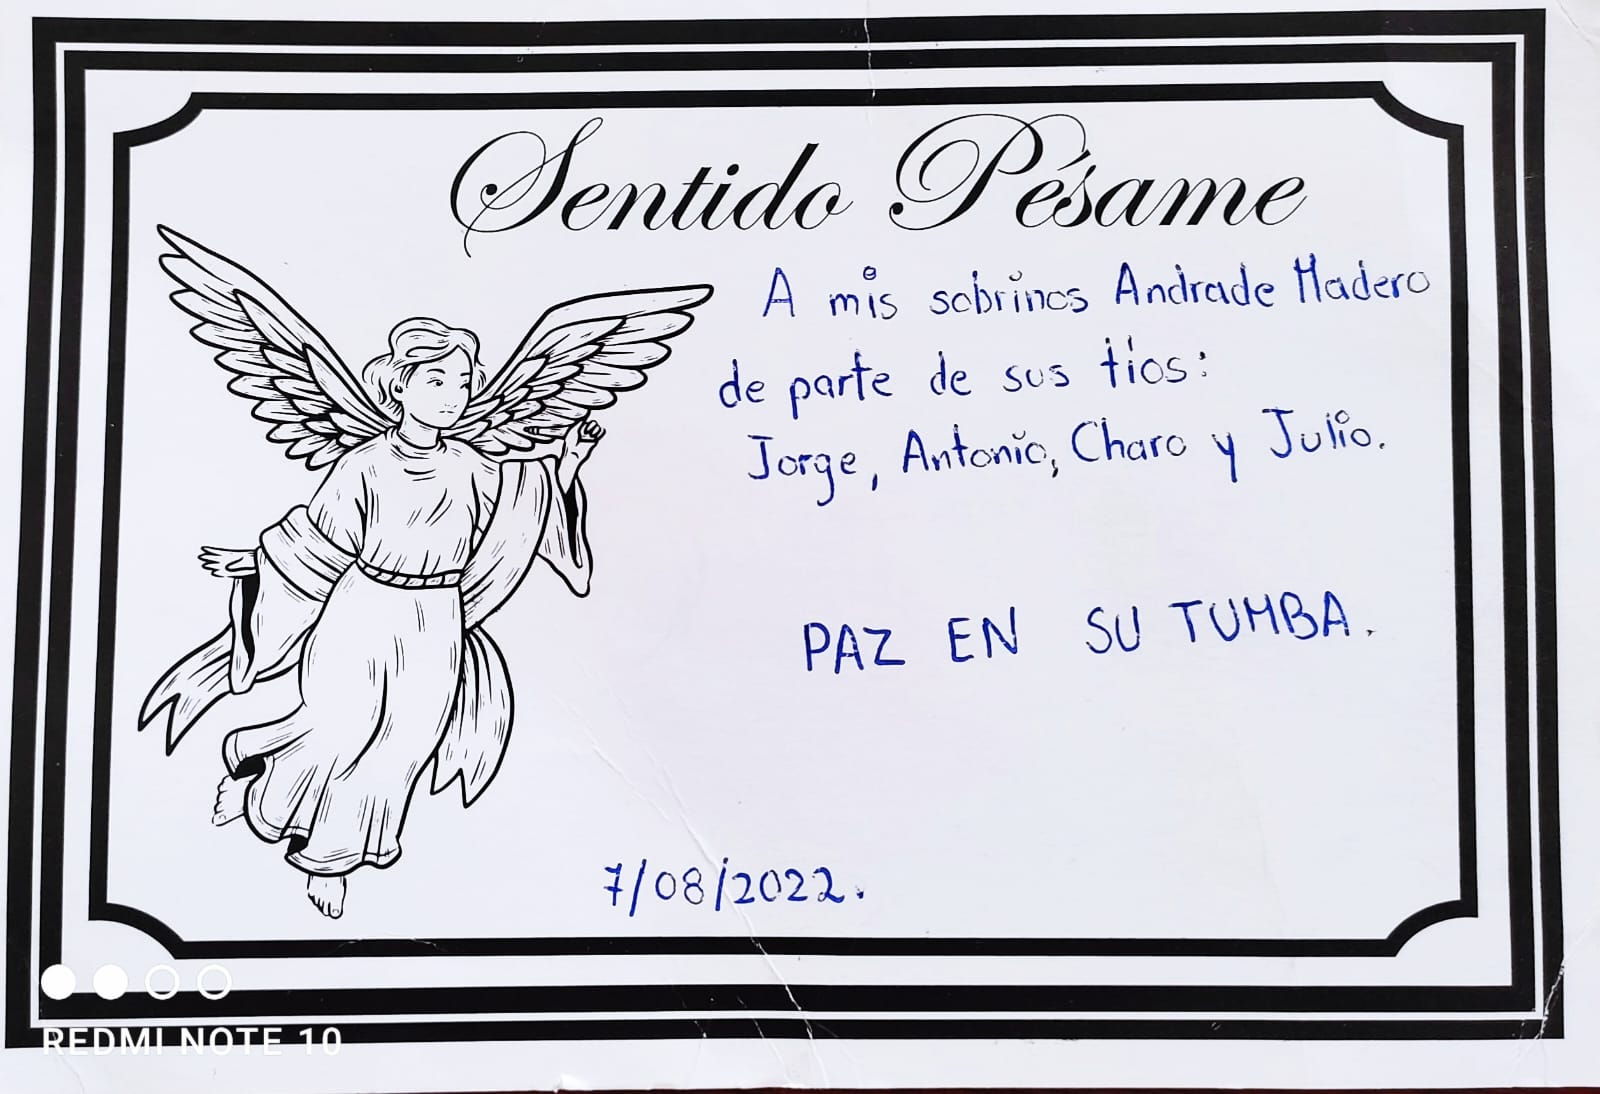 Sentido Pésame
A mis sobrinos Andrade Madero
de parte de sus tíos:
Jorge, Antonio, Charo y Julio.
PAZ EN SU TUMBA.
7/08/2022.
REDMI NOTE 10